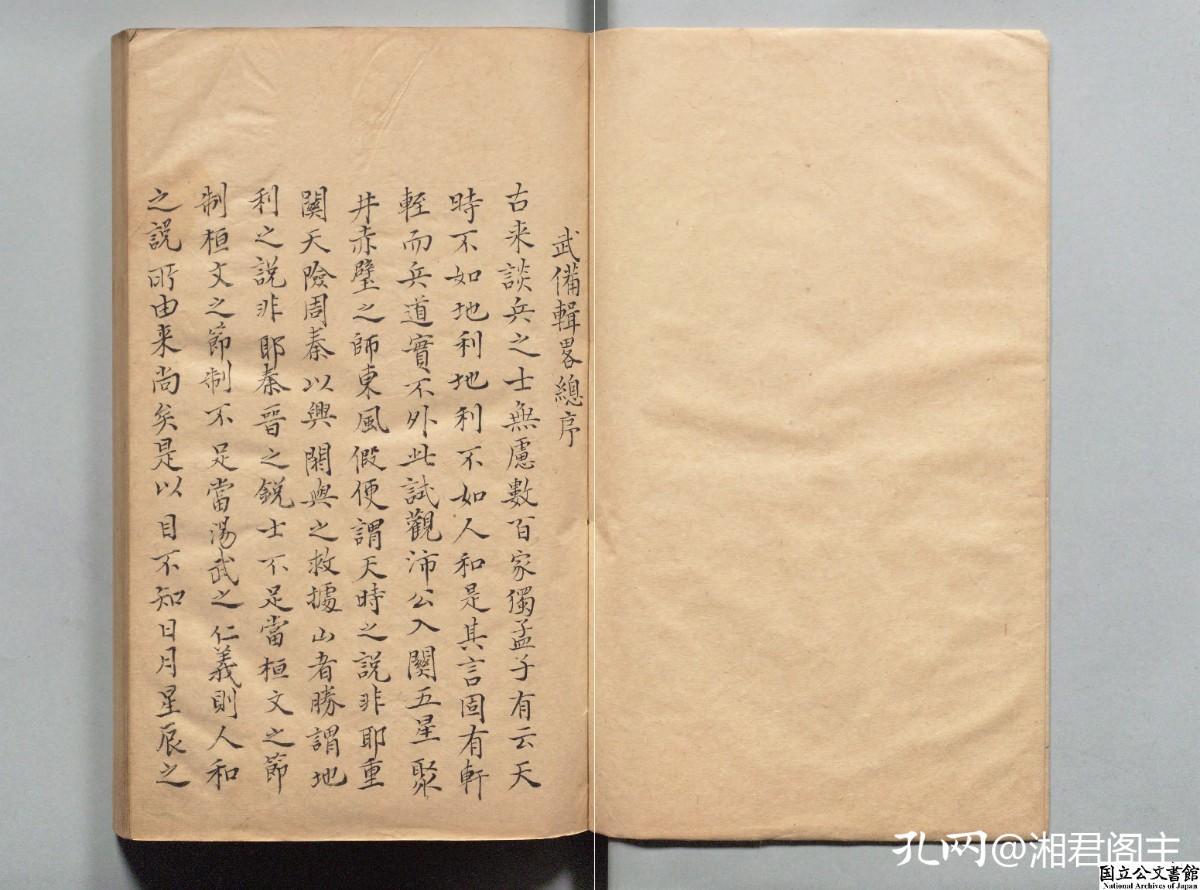 武備輯畧總序
古来談兵之士無慮數百家獨孟子有云天
時不如地利地利不如人和是其言固有軒
輊而兵道實不外此試觀沛公入關五星聚
井赤璧之師東風假便謂天時之說非耶重
關天險周秦以興閼與之救據山者勝謂地
利之說非耶秦晉之銳士不足當桓文之節
制桓文之節制不足當湯武之仁義則人和
之說所由来尚矣是以目不知日月星辰之
孔网@湘君阁主
国立公文書館
National Archives of Japan